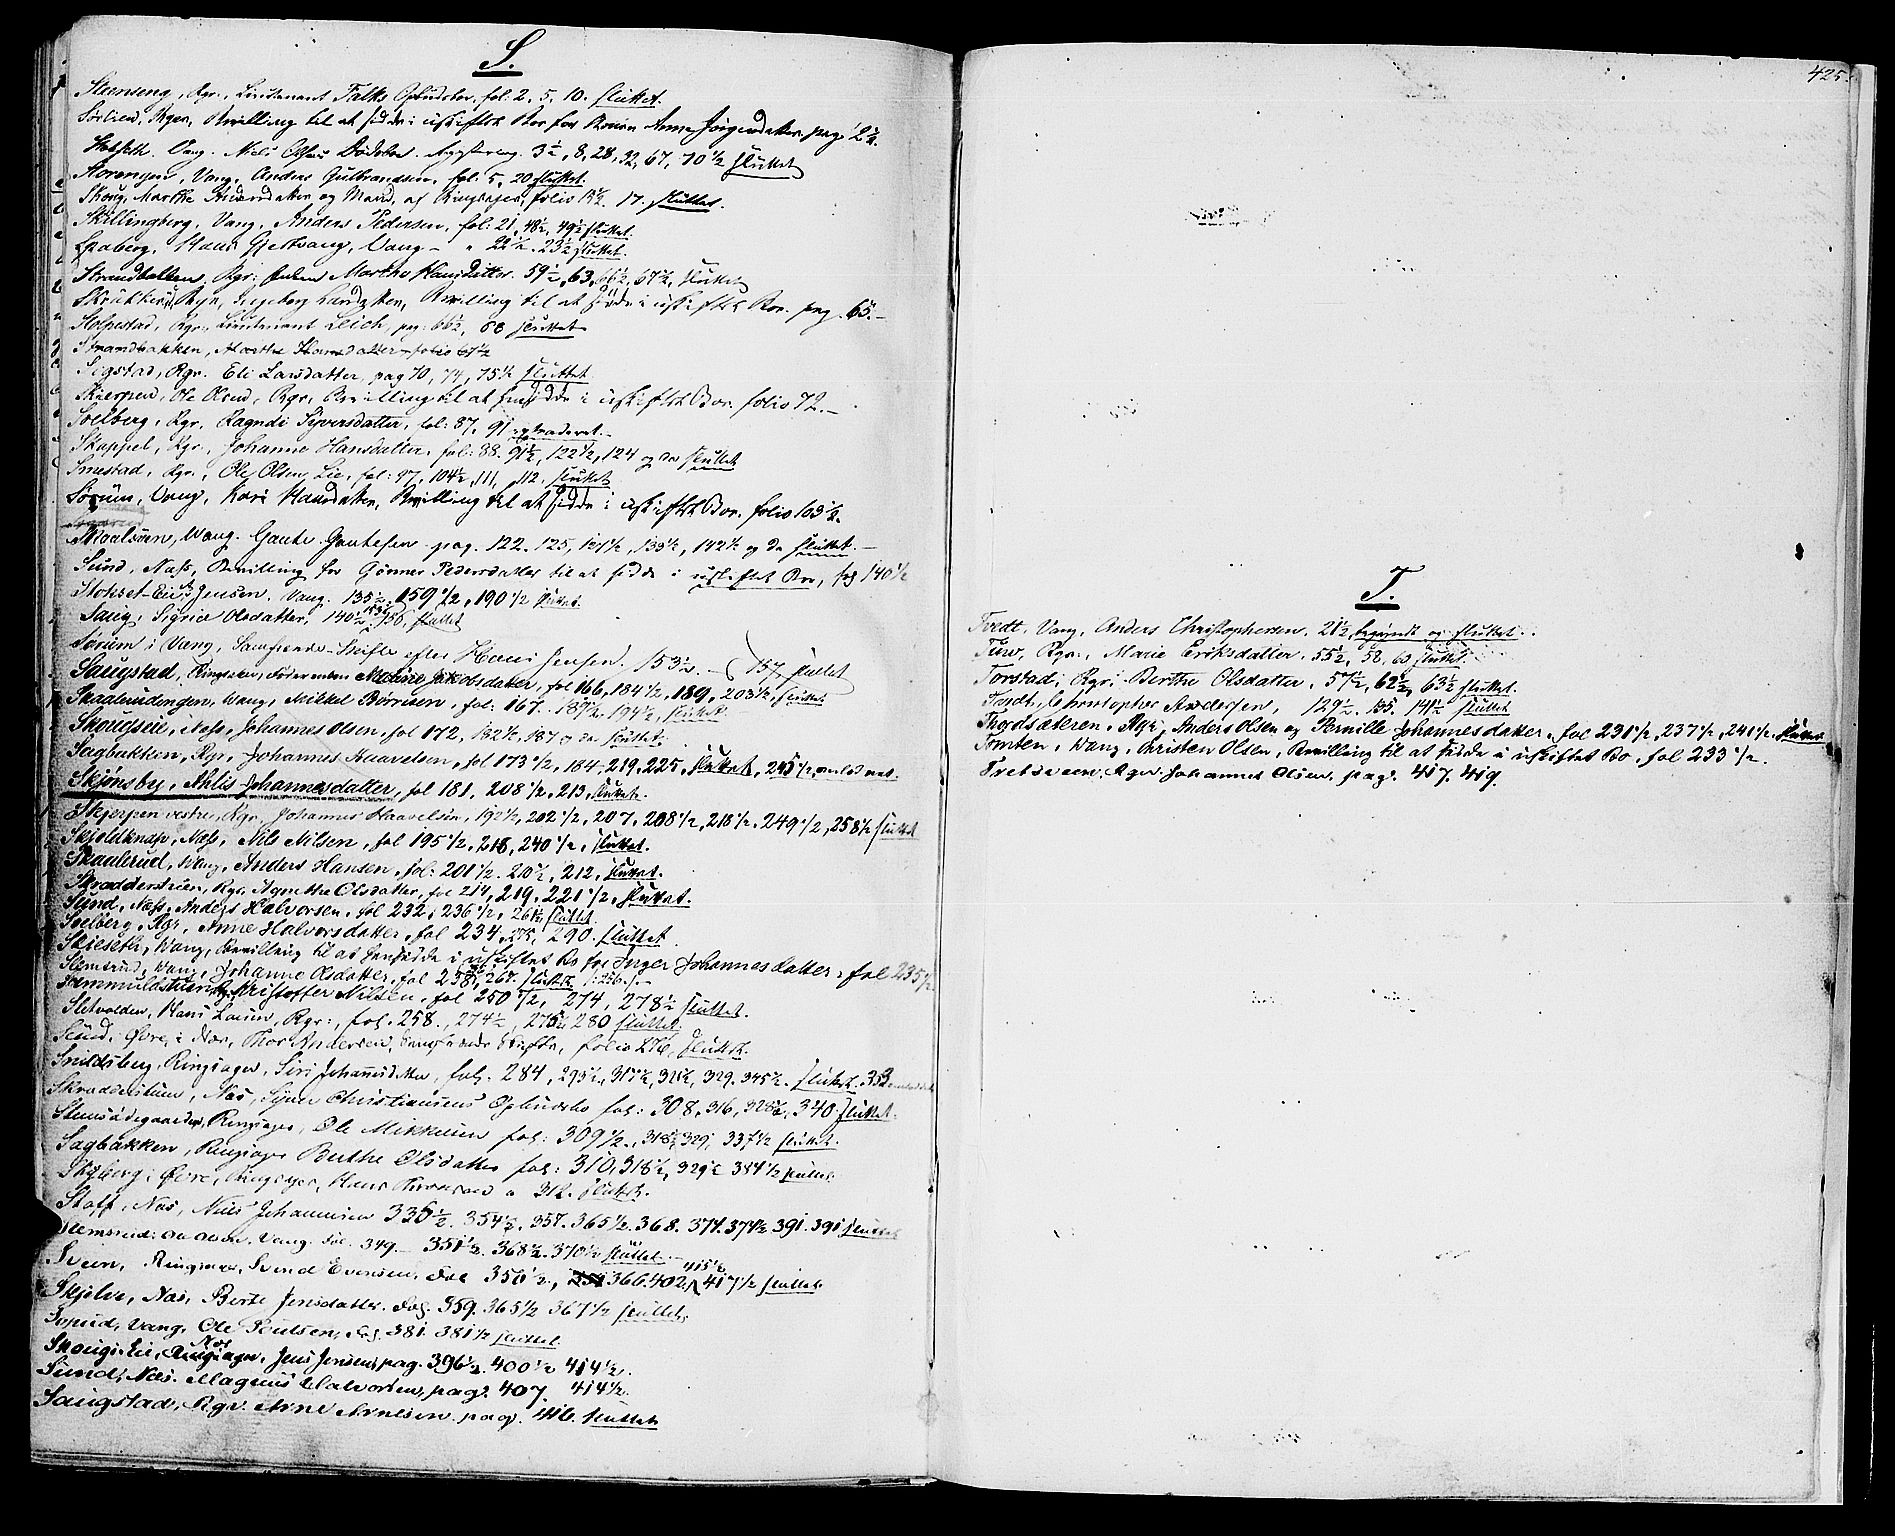 S.
Steenseng, Rgr., Lieutenant Falks Opbudsbo, fol: 2, 5, 10. sluttet.
Sørlien, Rgr, Bevilling til at sidde i uskiftet Bo for Anne Jørgensdatter pag: 2½.
Vang. Niels Olsens Dødsbo. 3½, 8, 28, 32, 67, 70½ sluttet
Storengen, Vang, Anders Gulbrandsen, fol: 5, 20 sluttet.
Skoug, Marthe og Mand, af Ringsager, folio 17. sluttet.
Skillingberg, Vang, Anders Pedersen, fol: 21, 48½, 49½ sluttet.
Spaberg, Hans Gjestvang, Vang - " 22½. 23½ sluttet.
Strandbakken, Rgr: Marthe Hansdatter. 59½, 63, 66½, 67½, sluttet
Rgr, Ingeborg Bevilling til at sidde i uskiftet Bo. pag. 65.-
Stolpestad, Rgr., Lieutenant Leich, pag: 66½, 68 sluttet
Strandbakken, Marthe Hansdatter folio 67½
Sigstad, Rgr. Eli Larsdatter, pag 70, 74, 75½ sluttet
Skierpen, Ole Olsen, Rgr, Bevilling til at hensidde i uskiftet Bo. folio 72.-
Soelberg, Rgr, Ragndi Syversdatter, fol: 87. 91 extraderet.
Skappel, Rgr., Johanne Hansdatter, fol: 88. 91½, 122½, 124 og da sluttet
Smestad, Rgr., Ole Olsen Lie, fol: 97, 104½, 111, 112. sluttet
Sørum, Vang, Kari Hansdatter, Bevilling til at sidde i uskiftet Bo. folio 103½.
Wang. Gaute Gautesen pag. 122. 125, 131½, 139½, 142½ og da sluttet.-
Sund, Næss, Bevilling for Gønner Pedersdatter til at sidde i uskiftet Bo, fol 140½
Stohset-Eie, Jensen, Vang. 135½, 159½, 190½ sluttet.
Saug, Sigrid Olsdatter, 140½, 153½, 156, sluttet
Sørum i Vang, Samfrænde-Skifte efter Hans Jensen. 153½. - 157, sluttet
Saugstad, Ringsager, Maline Jakobsdatter, fol 166, 184½, 189, 203½, sluttet
Skaalerudengen, Wang, Mikkel Børresen, fol: 167. 189½, 194½, sluttet.
Skougseie, Næss, Johannes Olsen, fol 172, 182½, 187 og da sluttet.
Sagbakken, Rgr, Johannes Haavelsen, fol 173½, 184, 219, 225, sluttet, 245½
Skjønsby, Ahlis Johannesdatter, fol 181, 208½, 213, sluttet.
Skjerpen vestre, Rgr, Johannes Haavelsen, 192½, 202½, 207, 208½, 218½. 249½, 258½ sluttet
Skjoldknap, Næss, Nils Nilsen, fol 195½, 218, 240½, sluttet.
Skaalerud, Wang, Anders Hansen, fol: 201½. 210½, 212, sluttet.
Skradderstuen, Rgr, Agnethe Olsdatter, fol 214, 219, 221½, sluttet.
Sund, Næss, Anders Halvorsen, fol 232, 236½, 261½ sluttet.
Soelberg, Rgr, Anne Halvorsdatter, fol 234, 275, 290. sluttet
Skieseth, Wang, Bevilling til at hensidde i uskiftet Bo for Inger Johannesdatter, fol 235½
Slemsrud, Wang, Johanne Olsdatter, fol 238½, 267. sluttet
Kristoffer Nilsen, fol 250½, 274, 278½ sluttet.
Sletvolden, Hans Larsen, Rgr:, fol. 258., 274½, 275½ 280 sluttet.
Sund, Øvre, i Næs, Thor Andersen, Samfrænde Skifte, folio 276, sluttet.
Snildsberg, Ringsager, Siri Johannesdatter, fol. 284, 293½, 317½, 321½, 329. 345½. sluttet. 353
Skradderstuen, Næs, Syver Christiansens Opbudsbo fol: 308, 316, 328½, 340 sluttet.
Ringsager, Ole Mikkelsen fol: 309½, 318½, 329, 337½ sluttet.
Sagbakken, Ringsager Berthe Olsdatter fol: 310, 318½, 329½ 384½ sluttet.
Skyberg, Øvre, Ringsager, Hans " 312. sluttet.
Staff, Næs, Niels Johannesen 336½. 354½. 357. 365½. 368. 374. 374½ 391. 391 sluttet
Slemsrud. Vang. Fol. 349. 351½. 368½. 370½ sluttet.-
Sveen, Ringsager, Svend Evensen, Fol 350½, 366. 402. 415½ 417½ sluttet
Skjelve, Næs, Berte Jensdatter. Fol. 359. 365½ 367½ sluttet.
Vang, Ole Poulsen, Fol. 381. 381½ sluttet.
Skougs-Eie, Næs Jens Jensen, pag. 396½. 400½ 414½.
Sund, Næs. Magnus Halvorsen, pag. 407. 414½.
Saugstad, Rgr. Arne Arnesen. pag. 416. sluttet
425.
T.
Tvedt, Vang, Anders Christophersen, 21½ begyndt og sluttet.
Rgr., Marie Eriksdatter. 55½, 58, 63 sluttet.
Torstad, Rgr: Berthe Olsdatter, 57½, 62½, 63½ sluttet.
Tvedt, Christopher Andersen, 129½. 135. 141½ sluttet
Thordsæteren, Rgr, Anders Olsen og Pernille Johannesdatter, fol 231½, 237½, 241½. sluttet
Tomten, Wang, Christen Olsen, Bevilling til at sidde i uskiftet Bo, fol 233½.
Rgr. Johannes Olsen. pag. 417. 419.